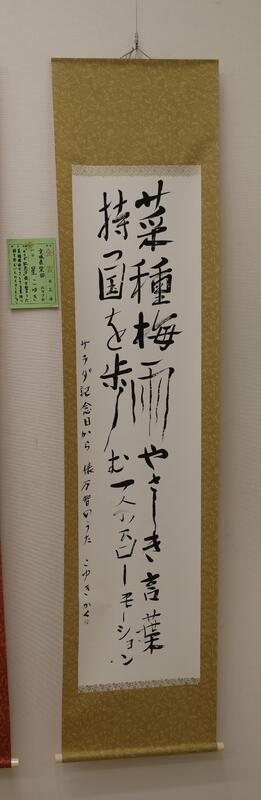 菜種梅雨やさしき言葉
持つ国を歩む一人のスローモーション
サラダ記念日から 俵万智のうた こゆきかく
金賞
星 こゆき